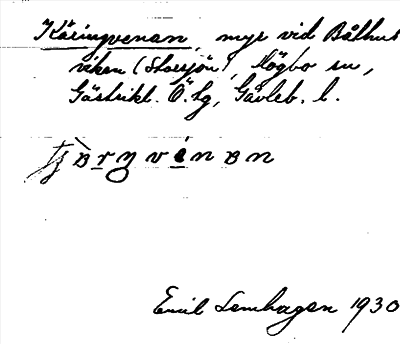 Käringvenan, myr vid Bålhus
viken (Storsjön), Högbo sn,
Gästrikl. Ö. tg, Gävleb. l.
Emil Lenhagen 1930